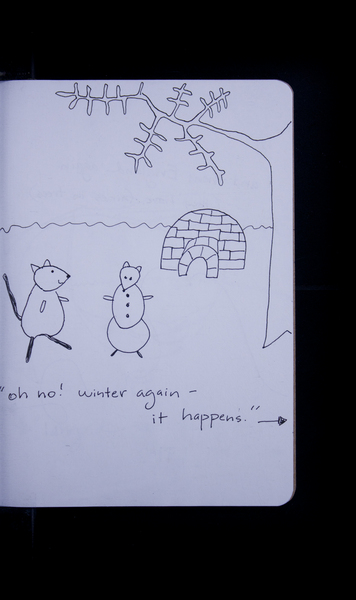 "oh no! winter again –
it happens."